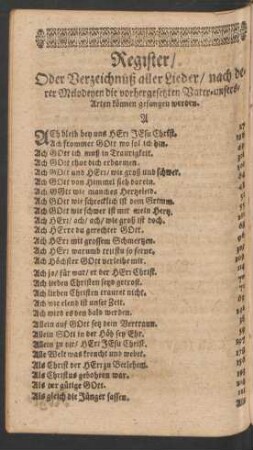 Register/
Oder Verzeichnüß aller Lieder/ nach de-
rer Melodeyen die vorhergesetzten Vater-unsers/
Arien können gesungen werden.
A
ACh bleib bey uns HErr JEsu Christ.
Ach frommer GOtt wo sol ich hin.
Ach GOtt ich muß in Traurigkeit.
Ach GOtt thue dich erbarmen.
Ach GOtt und HErr/ wie groß und schwer.
Ach GOtt von Himmel sieh darein.
Ach GOtt wie manches Hertzeleid.
Ach GOtt wie schrecklich ist dein Grimm.
Ach GOtt wie schwer ist mir mein Hertz.
Ach HErr/ ach/ ach/ wie groß ist doch.
Ach HErre du gerechter GOtt.
Ach HErr mit grossem Schmertzen.
Ach HErr warumb trittst so ferne.
Ach Höchster GOtt verleihe mir.
Ach ja/ für war/ er der HErr Christ.
Ach lieben Christen seyd getrost.
Ach lieben Christen trauret nicht.
Ach wie elend ist unser Zeit.
Ach wird es den bald werden.
Allein auf GOtt setz dein Vertraun.
Allein GOtt in der Höh sey Ehr.
Allein zu dir/ HErr JEsu Christ.
Alle Welt was kreucht und webet.
Als Christ der HErr zu Betlehem.
Als Christus gebohren war.
Als der gütige GOtt.
Als gleich die Jünger sassen.
Als